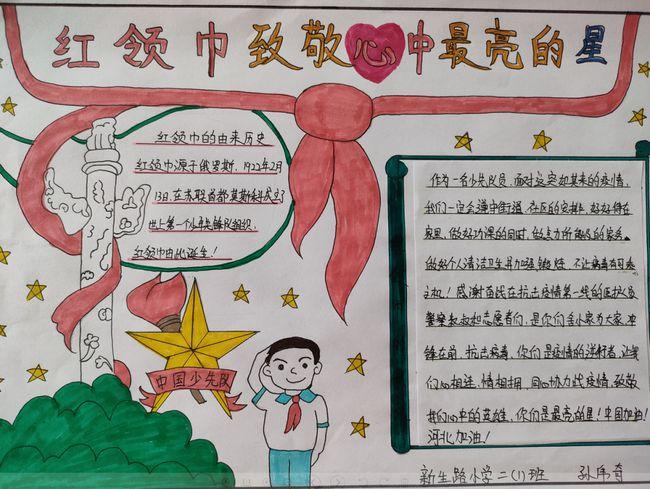 红领巾致敬心中最亮的星
红领巾的由来历史
红领巾源于俄罗斯，1922年2月
13日，在苏联首都莫斯科成立了
世上第一个少年先锋队组织，
红领巾由此诞生！
中国少先队
作为一名少先队员，面对这突如其来的疫情，
我们一定会遵守街道、社区的安排，好好待在
家里，做好功课的同时，做点力所能及的家务。
做好个人清洁卫生并加强锻炼，不让病毒有可乘
之机！感谢奋战在抗击疫情第一线的医护人员
警察叔叔和志愿者们，是你们舍小家为大家，冲
锋在前，抗击病毒，你们是疫情的逆行者，让我
们心相连，情相拥，同心协力战疫情，致敬
我们心中的英雄，你们是最亮的星！中国加油！
河北加油！
新生路小学二(1)班 孙